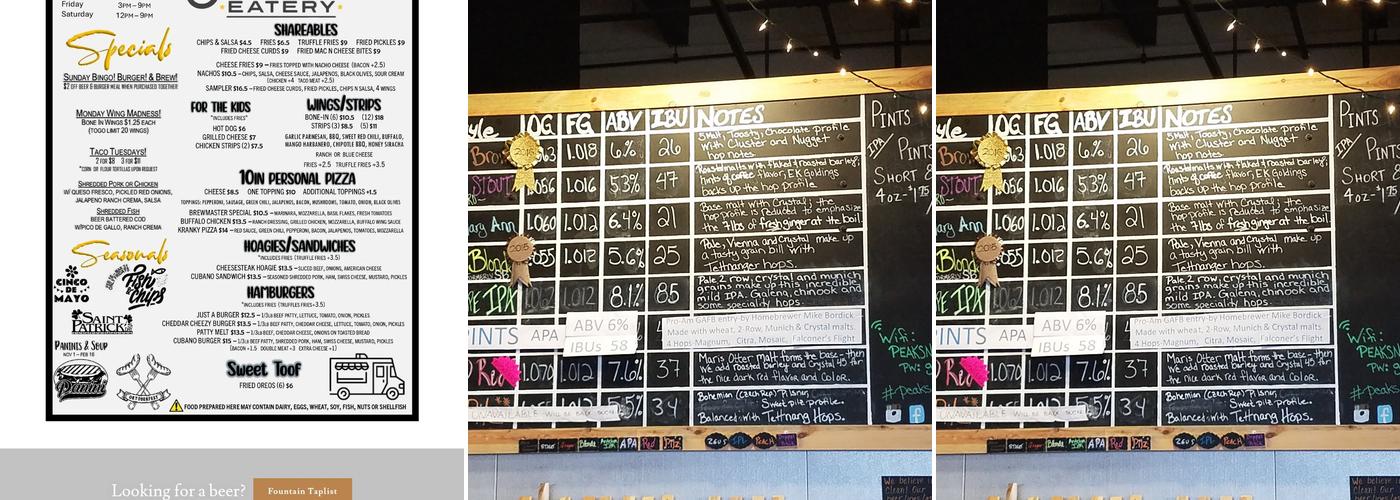 Friday 3PM–9PM
Saturday 12PM–9PM
EATERY
Specials
SUNDAY BINGO! BURGER! & BREW!
$2 OFF BEER & BURGER MEAL WHEN PURCHASED TOGETHER!
MONDAY WING MADNESS!
BONE IN WINGS $1.25 EACH
(TOGO LIMIT 20 WINGS)
TACO TUESDAYS!
2 FOR $8 3 FOR $11
*CORN OR FLOUR TORTILLAS UPON REQUEST
SHREDDED PORK OR CHICKEN
W/ QUESO FRESCO, PICKLED RED ONIONS,
JALAPENO RANCH CREMA, SALSA
SHREDDED FISH
BEER BATTERED COD
W/PICO DE GALLO, RANCH CREMA
Seasonals
CINCO DE MAYO
FISH CHIPS
SAINT PATRICK
PANINIS & SOUP
NOV 1 – FEB 16
Panini
OKTOBERFEST
SHAREABLES
CHIPS & SALSA $4.5 FRIES $6.5 TRUFFLE FRIES $9 FRIED PICKLES $9
FRIED CHEESE CURDS $9 FRIED MAC N CHEESE BITES $9
CHEESE FRIES $9 – FRIES TOPPED WITH NACHO CHEESE (BACON +2.5)
NACHOS $10.5 – CHIPS, SALSA, CHEESE SAUCE, JALAPENOS, BLACK OLIVES, SOUR CREAM
(CHICKEN +4 TACO MEAT +2.5)
SAMPLER $16.5 – FRIED CHEESE CURDS, FRIED PICKLES, CHIPS N SALSA, 4 WINGS
FOR THE KIDS
*INCLUDES FRIES*
HOT DOG $6
GRILLED CHEESE $7
CHICKEN STRIPS (2) $7.5
WINGS/STRIPS
BONE-IN (6) $10.5 (12) $18
STRIPS (3) $8.5 (5) $11
GARLIC PARMESAN, BBQ, SWEET RED CHILI, BUFFALO,
MANGO HABANERO, CHIPOTLE BBQ, HONEY SIRACHA
RANCH OR BLUE CHEESE
FRIES +2.5 TRUFFLE FRIES +3.5
10IN PERSONAL PIZZA
CHEESE $8.5 ONE TOPPING $10 ADDITIONAL TOPPINGS +1.5
TOPPINGS: PEPPERONI, SAUSAGE, GREEN CHILI, JALAPENOS, BACON, MUSHROOMS, TOMATO, ONION, BLACK OLIVES
BREWMASTER SPECIAL $10.5 – MARINARA, MOZZARELLA, BASIL FLAKES, FRESH TOMATOES
BUFFALO CHICKEN $13.5 – RANCH DRESSING, GRILLED CHICKEN, MOZZARELLA, BUFFALO WING SAUCE
KRANKY PIZZA $14 – RED SAUCE, GREEN CHILI, PEPPERONI, BACON, JALAPENOS, TOMATOES, MOZZARELLA
HOAGIES/SANDWICHES
*INCLUDES FRIES (TRUFFLE FRIES +3.5)
CHEESESTEAK HOAGIE $13.5 – SLICED BEEF, ONIONS, AMERICAN CHEESE
CUBANO SANDWICH $13.5 – SEASONED SHREDDED PORK, HAM, SWISS CHEESE, MUSTARD, PICKLES
HAMBURGERS
*INCLUDES FRIES (TRUFFLES FRIES +3.5)
JUST A BURGER $12.5 – 1/3LB BEEF PATTY, LETTUCE, TOMATO, ONION, PICKLES
CHEDDAR CHEEZY BURGER $13.5 – 1/3LB BEEF PATTY, CHEDDAR CHEESE, LETTUCE, TOMATO, ONION, PICKLES
PATTY MELT $13.5 – 1/3LB BEEF PATTY, CHEDDAR CHEESE, ONION ON TOASTED BREAD
CUBANO BURGER $15 – 1/3LB BEEF PATTY, SHREDDED PORK, HAM, SWISS CHEESE, MUSTARD, PICKLES
(BACON +1.5 DOUBLE MEAT +3 EXTRA CHEESE +1)
Sweet Toof
FRIED OREOS (6) $6
FOOD PREPARED HERE MAY CONTAIN DAIRY, EGGS, WHEAT, SOY, FISH, NUTS OR SHELLFISH
Looking for a beer? Fountain Taplist
yle OG FG ABV IBU NOTES
1.018 6% 26 Malt, Toasty, Chocolate profile
With Cluster and Nugget
hop notes
STOUT 1.016 5.3% 47 Roasted malts with flaked & roasted barley,
hints of coffee flavor, EK Goldings
backs up the hop profile
ary Ann 1.060 1.012 6.4% 21 Base malt with Crystal; the
hop profile is reduced to emphasize
the 7lbs of fresh ginger at the boil.
Blond 2015 1.012 5.6% 25 Pale, Vienna and Crystal make up
a tasty grain bill with
Tettnanger hops.
E IPA 1.062 1.012 8.1% 85 Pale 2 row, crystal and munich
grains make up this incredible
mild IPA. Galena, chinook and
some specialty hops.
PINTS APA ABV 6%
IBUs 58
Pro-Am GAFB entry-by Homebrewer Mike Bordick
Made with wheat, 2-Row, Munich & Crystal malts.
4 Hops-Magnum, Citra, Mosaic, Falconer's Flight
Red 1.070 1.012 7.6% 37 Maris Otter Malt forms the base - then
we add roasted barley and Crystal 45 for
the nice dark red flavor and color.
5.5% 34 Bohemian (Czech Rep) Pilsner,
Sweet pile profile.
Balanced with Tettnang Hops.
UNAVAILABLE WILL BE BACK SOON
PINTS
IPA PINTS
SHORT 8
4oz-$1.75
Wifi:
PEAKSN
PW: 9
#Peaks
Stout Blonde IPA APA Red Pilz Zeus IPL Peach
We believe in
Clean! Our

yle OG FG ABV IBU NOTES
1.018 6% 26 Malt, Toasty, Chocolate profile
With Cluster and Nugget
hop notes
STOUT 1.016 5.3% 47 Roasted malts with flaked & roasted barley,
hints of coffee flavor, EK Goldings
backs up the hop profile
ary Ann 1.060 1.012 6.4% 21 Base malt with Crystal; the
hop profile is reduced to emphasize
the 7lbs of fresh ginger at the boil.
Blond 2015 1.012 5.6% 25 Pale, Vienna and Crystal make up
a tasty grain bill with
Tettnanger hops.
E IPA 1.062 1.012 8.1% 85 Pale 2 row, crystal and munich
grains make up this incredible
mild IPA. Galena, chinook and
some specialty hops.
PINTS APA ABV 6%
IBUs 58
Pro-Am GAFB entry-by Homebrewer Mike Bordick
Made with wheat, 2-Row, Munich & Crystal malts.
4 Hops-Magnum, Citra, Mosaic, Falconer's Flight
Red 1.070 1.012 7.6% 37 Maris Otter Malt forms the base - then
we add roasted barley and Crystal 45 for
the nice dark red flavor and color.
5.5% 34 Bohemian (Czech Rep) Pilsner,
Sweet pile profile.
Balanced with Tettnang Hops.
UNAVAILABLE WILL BE BACK SOON
PINTS
IPA PINTS
SHORT 8
4oz-$1.75
Wifi:
PEAKSN
PW: 9
#Peaks